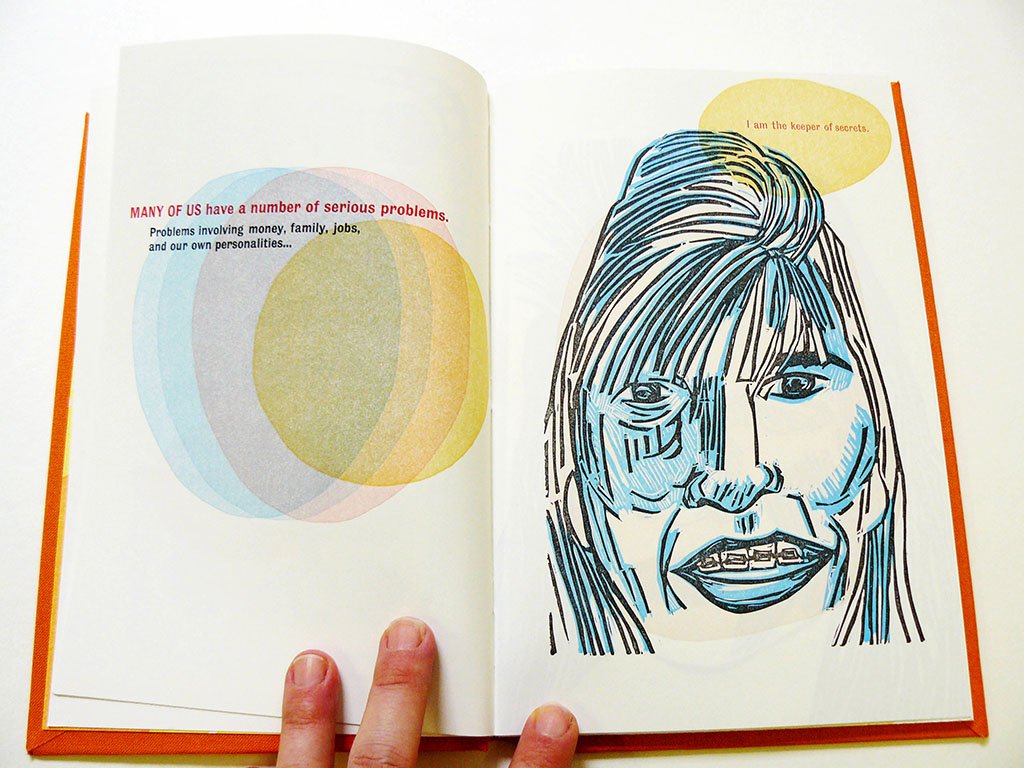 MANY OF US have a number of serious problems.
Problems involving money, family, jobs,
and our own personalities...
I am the keeper of secrets.